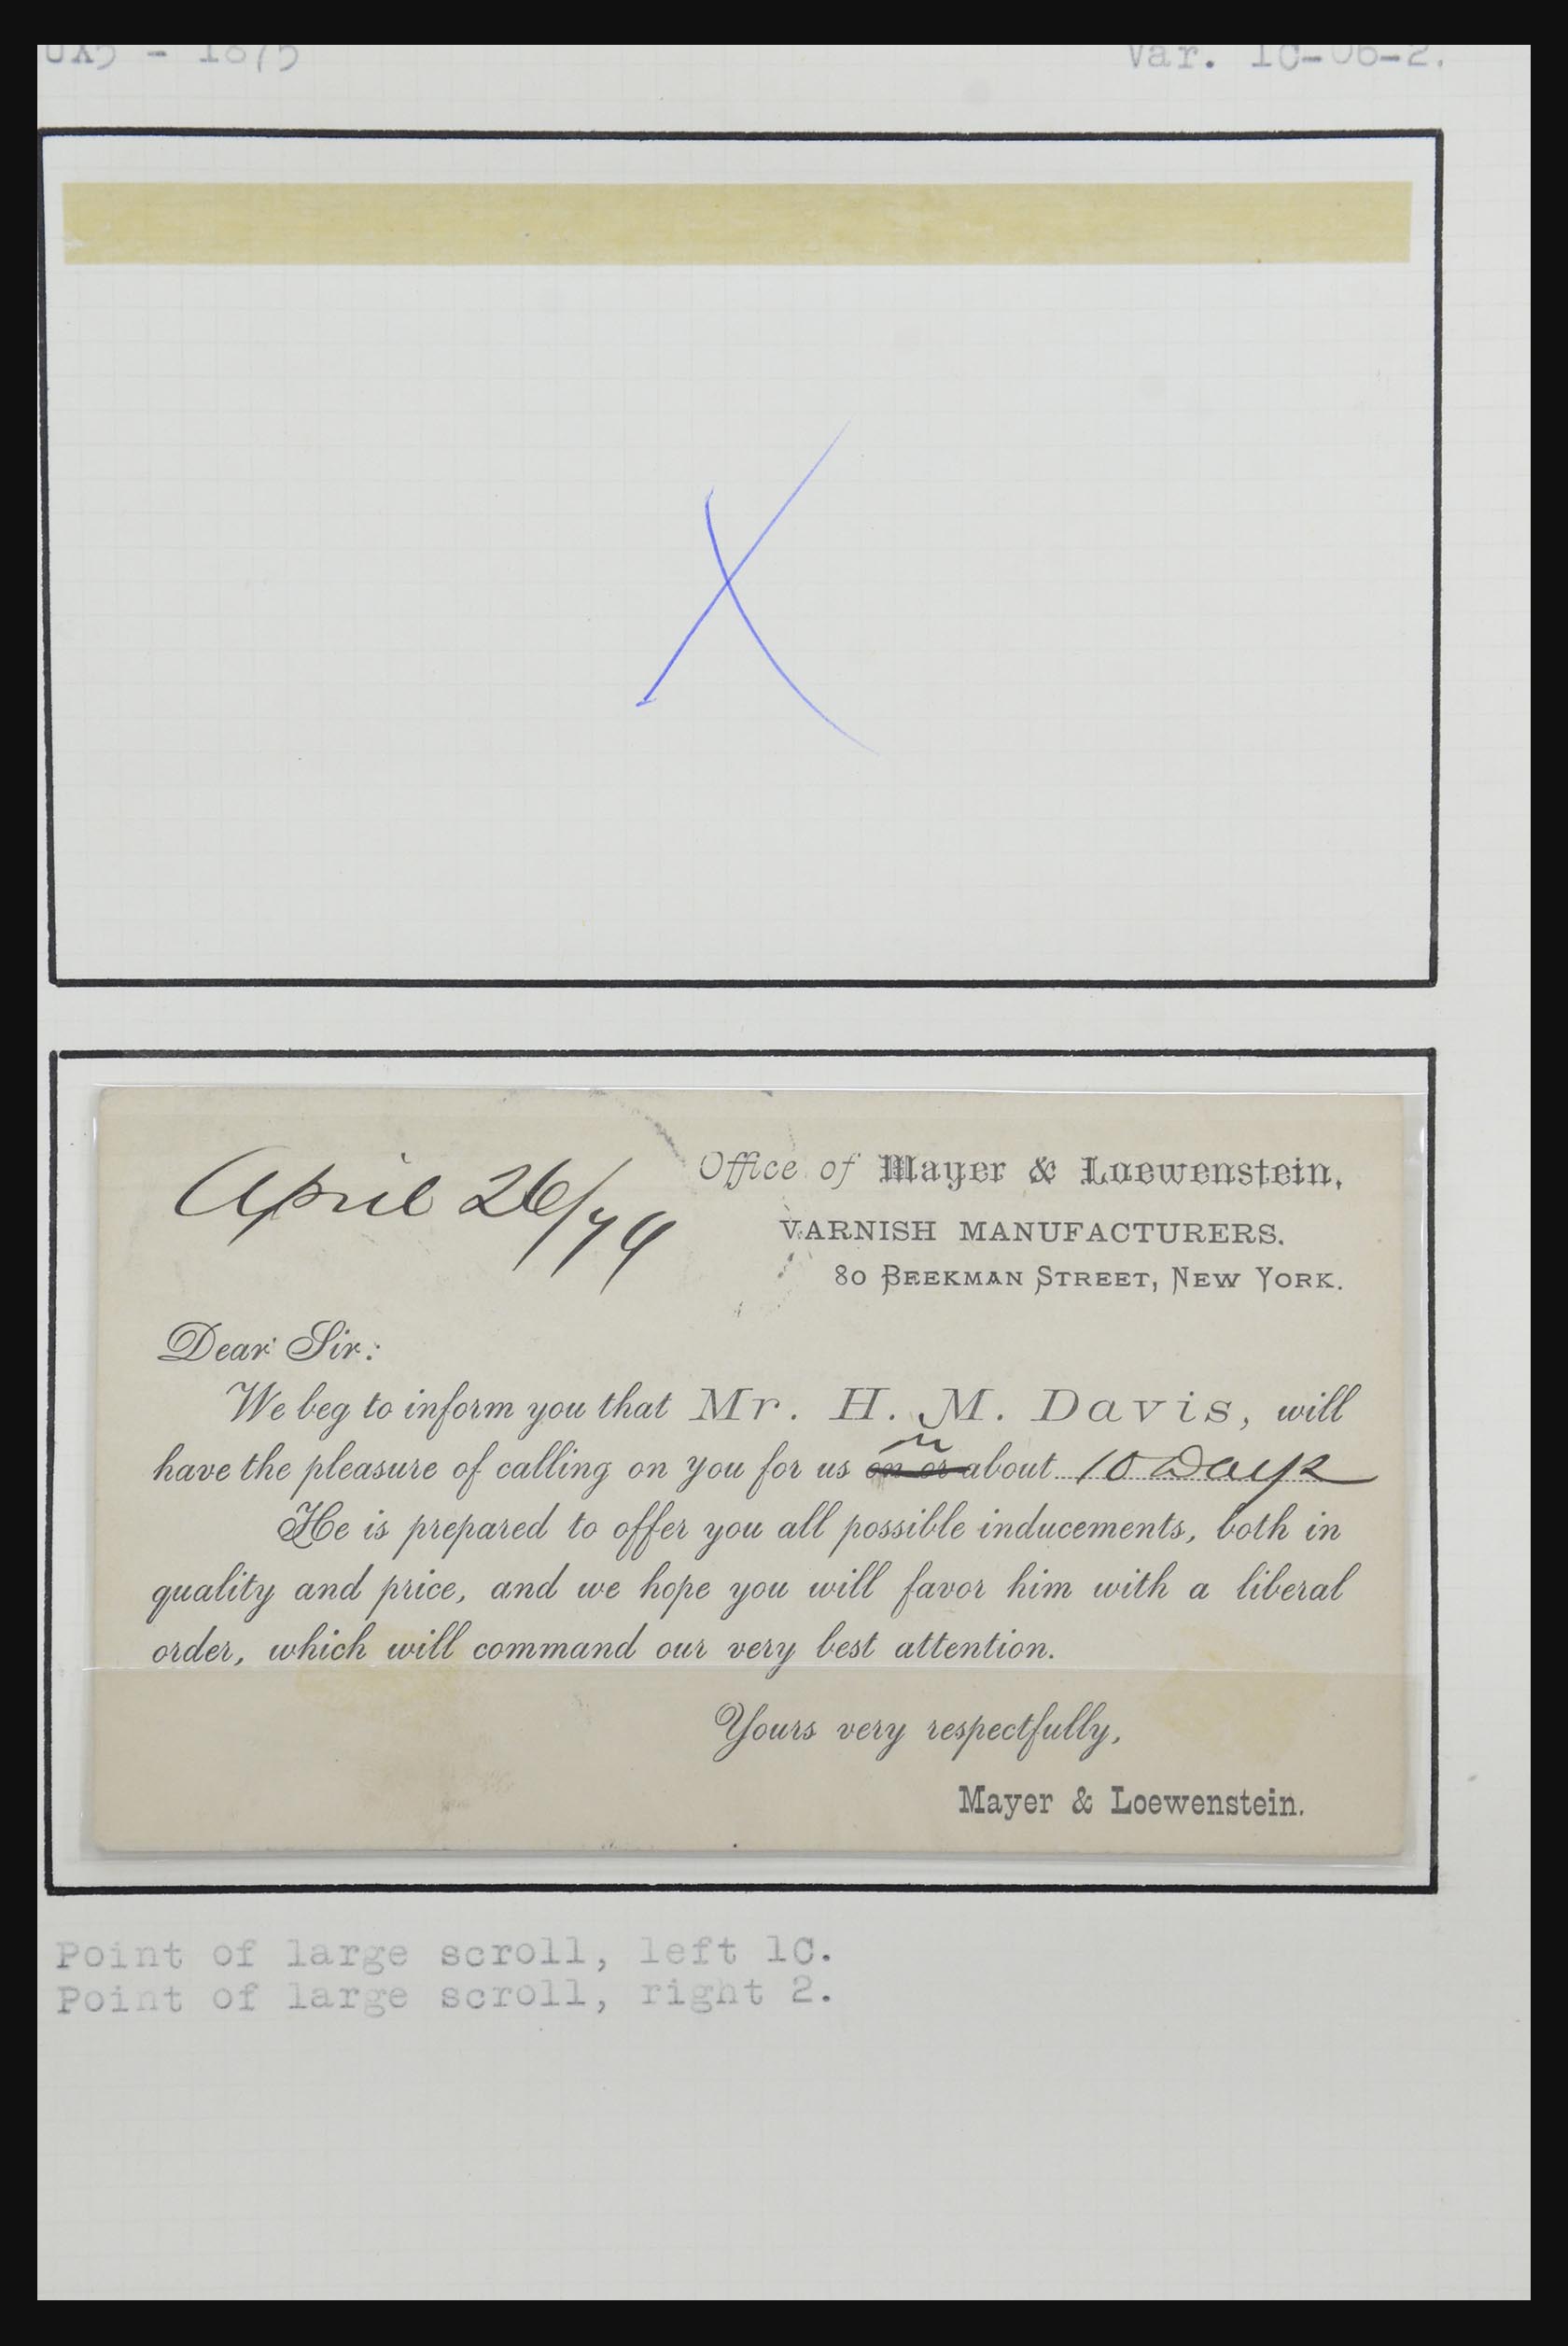 UX5 - 1875 Var. 1C-06-2.
April 26/79
Office of Mayer & Loewenstein,
VARNISH MANUFACTURERS.
80 BEEKMAN STREET, NEW YORK.
Dear Sir:
We beg to inform you that Mr. H. M. Davis, will
in
have the pleasure of calling on you for us on or about 10 Days
He is prepared to offer you all possible inducements, both in
quality and price, and we hope you will favor him with a liberal
order, which will command our very best attention.
Yours very respectfully,
Mayer & Loewenstein.
Point of large scroll, left 1C.
Point of large scroll, right 2.